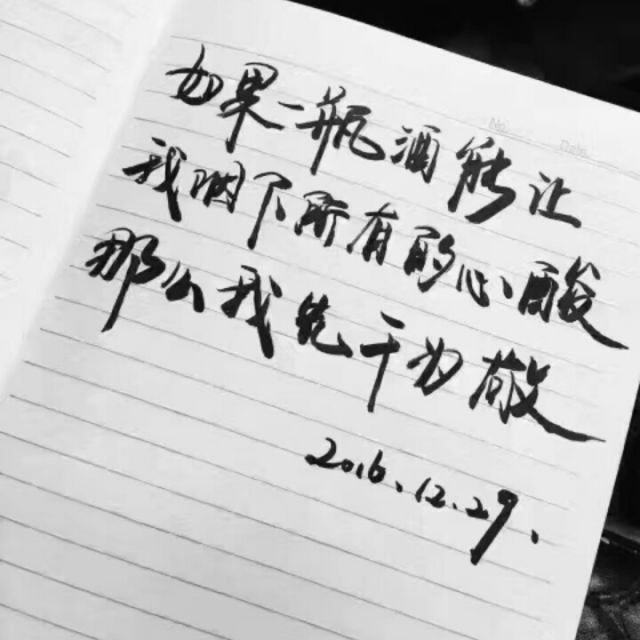 如果一瓶酒能让
No.
Date.
我咽下所有的心酸
那么我先干为敬
2016.12.27.